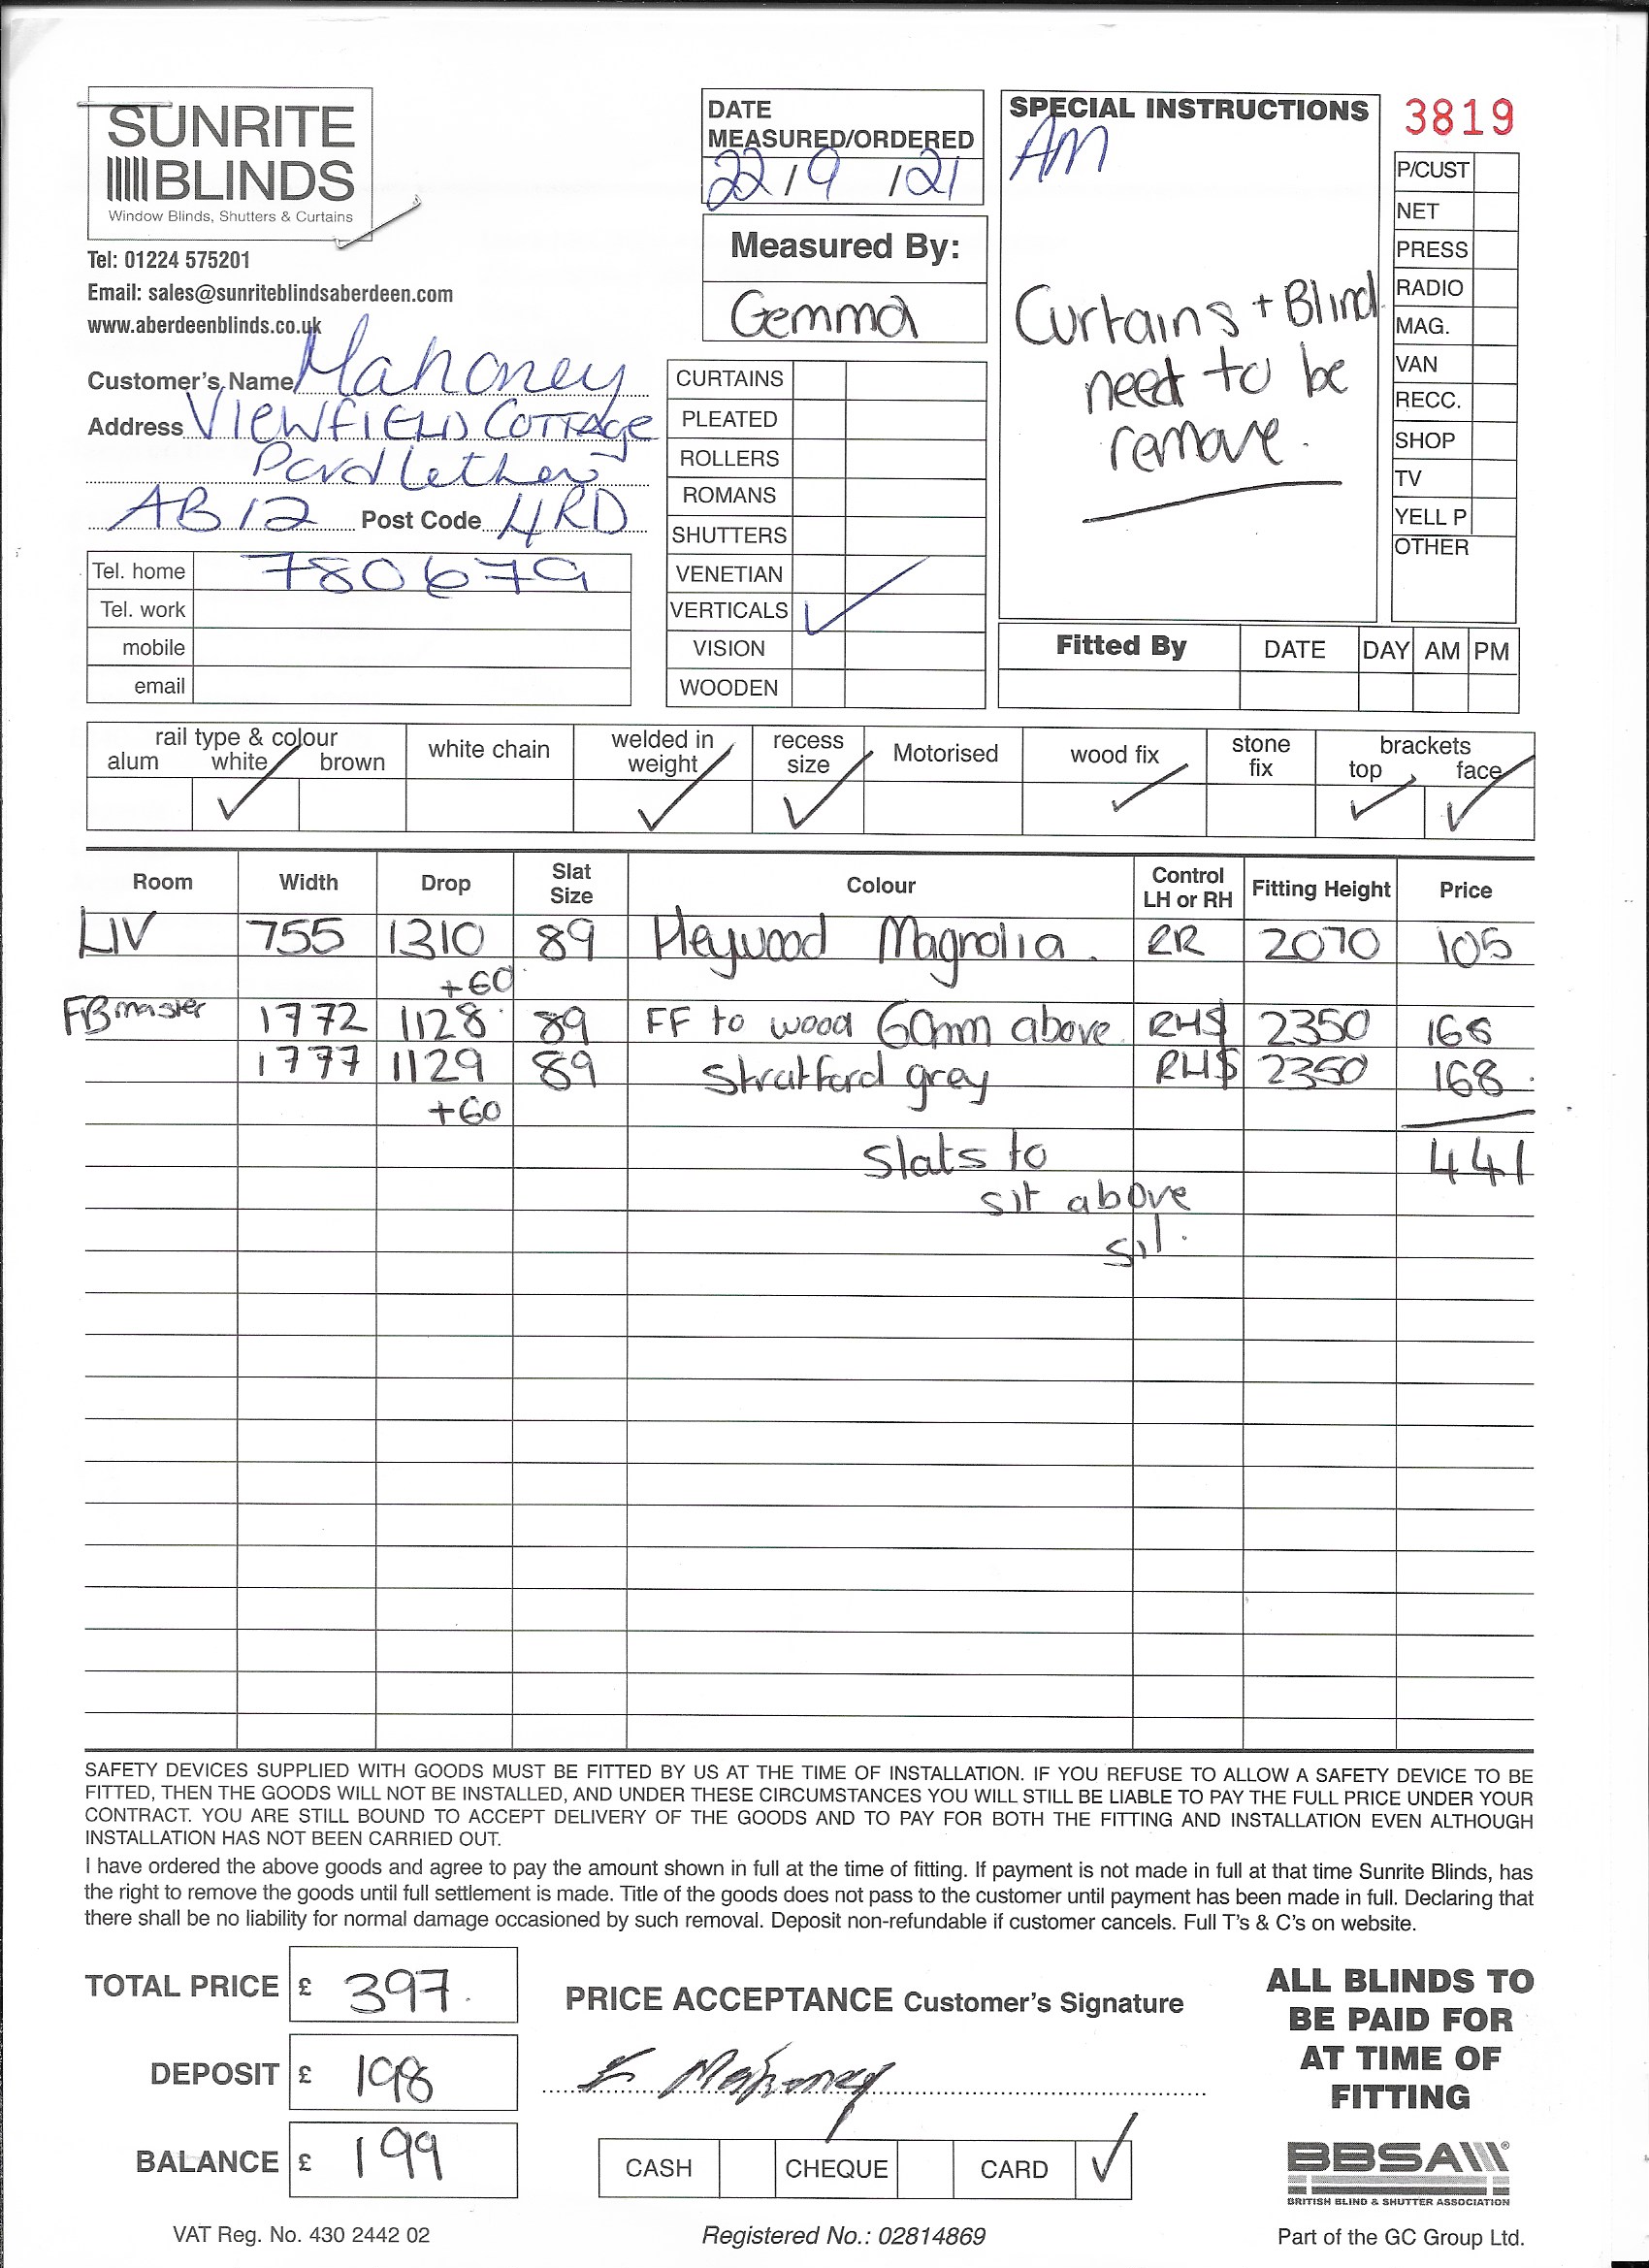 SUNRITE
BLINDS
Window Blinds, Shutters & Curtains
Tel: 01224 575201
Email: sales@sunriteblindsaberdeen.com
www.aberdeenblinds.co.uk
Customer's Name Mahoney
Address VIEWFIELD COTTAGE
AB12 Post Code 4RD
Tel. home 780679
Tel. work
mobile
email
DATE
MEASURED/ORDERED
22/9/21
Measured By:
Gemma
CURTAINS
PLEATED
ROLLERS
ROMANS
SHUTTERS
VENETIAN
VERTICALS ✓
VISION
WOODEN
SPECIAL INSTRUCTIONS
AM
Curtains + Blind
need to be
remove.
3819
P/CUST
NET
PRESS
RADIO
MAG.
VAN
RECC.
SHOP
TV
YELL P
OTHER
Fitted By DATE DAY AM PM
rail type & colour
alum white ✓ brown
white chain
welded in weight ✓
recess size ✓
Motorised
wood fix ✓
stone fix
brackets
top ✓ face ✓
Room Width Drop Slat Size Colour Control LH or RH Fitting Height Price
LIV 755 1310 89 Heywood Magnolia. RR 2070 105
+60
FB master 1772 1128 89 FF to wood 60mm above RHS 2350 168
1777 1129 89 Stratford grey RHS 2350 168
+60
441
Slats to
sit above
sil.
SAFETY DEVICES SUPPLIED WITH GOODS MUST BE FITTED BY US AT THE TIME OF INSTALLATION. IF YOU REFUSE TO ALLOW A SAFETY DEVICE TO BE
FITTED, THEN THE GOODS WILL NOT BE INSTALLED, AND UNDER THESE CIRCUMSTANCES YOU WILL STILL BE LIABLE TO PAY THE FULL PRICE UNDER YOUR
CONTRACT. YOU ARE STILL BOUND TO ACCEPT DELIVERY OF THE GOODS AND TO PAY FOR BOTH THE FITTING AND INSTALLATION EVEN ALTHOUGH
INSTALLATION HAS NOT BEEN CARRIED OUT.
I have ordered the above goods and agree to pay the amount shown in full at the time of fitting. If payment is not made in full at that time Sunrite Blinds, has
the right to remove the goods until full settlement is made. Title of the goods does not pass to the customer until payment has been made in full. Declaring that
there shall be no liability for normal damage occasioned by such removal. Deposit non-refundable if customer cancels. Full T's & C's on website.
TOTAL PRICE £ 397.
DEPOSIT £ 198
BALANCE £ 199
PRICE ACCEPTANCE Customer's Signature
Mahoney
CASH CHEQUE CARD ✓
ALL BLINDS TO
BE PAID FOR
AT TIME OF
FITTING
BBSA
BRITISH BLIND & SHUTTER ASSOCIATION
VAT Reg. No. 430 2442 02
Registered No.: 02814869
Part of the GC Group Ltd.